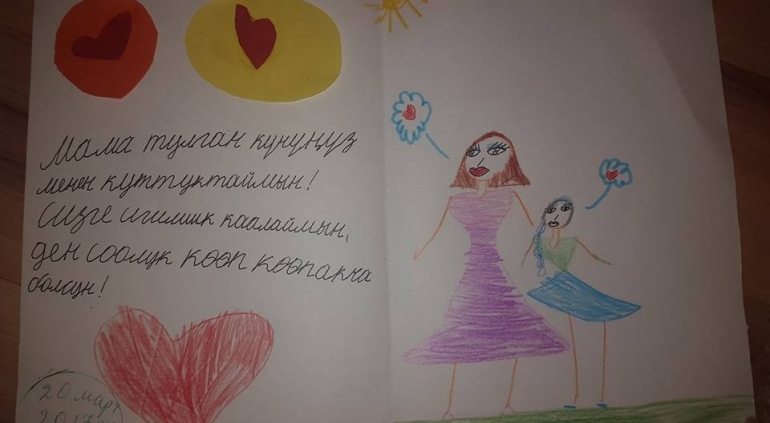 Мама тулган кунунуз
менен куттуктаймын!
Сизге игилик каалаймын,
ден соолук көөп көөпакча
болсун!
20 март
2017